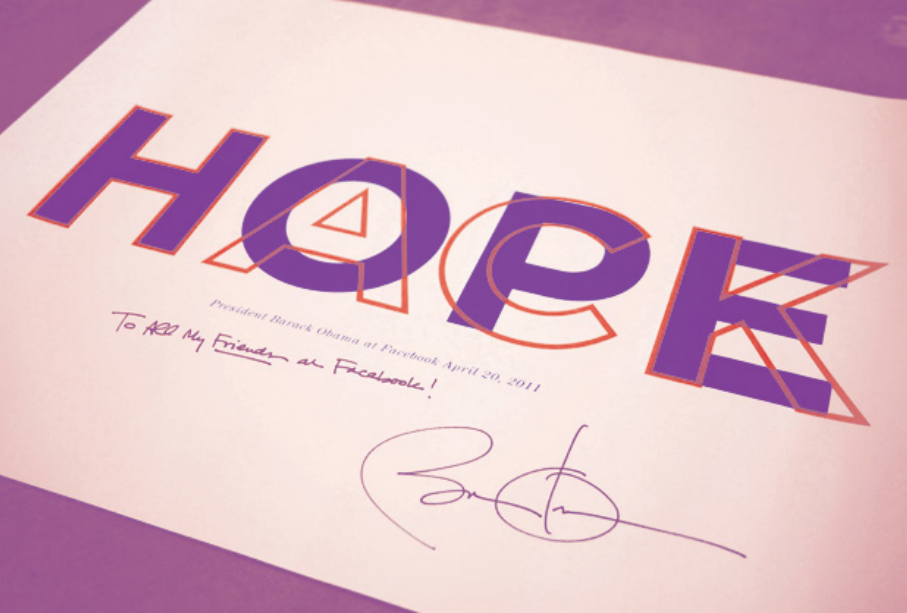 HOPE
HACK
President Barack Obama at Facebook April 20, 2011
To All My Friends at Facebook!